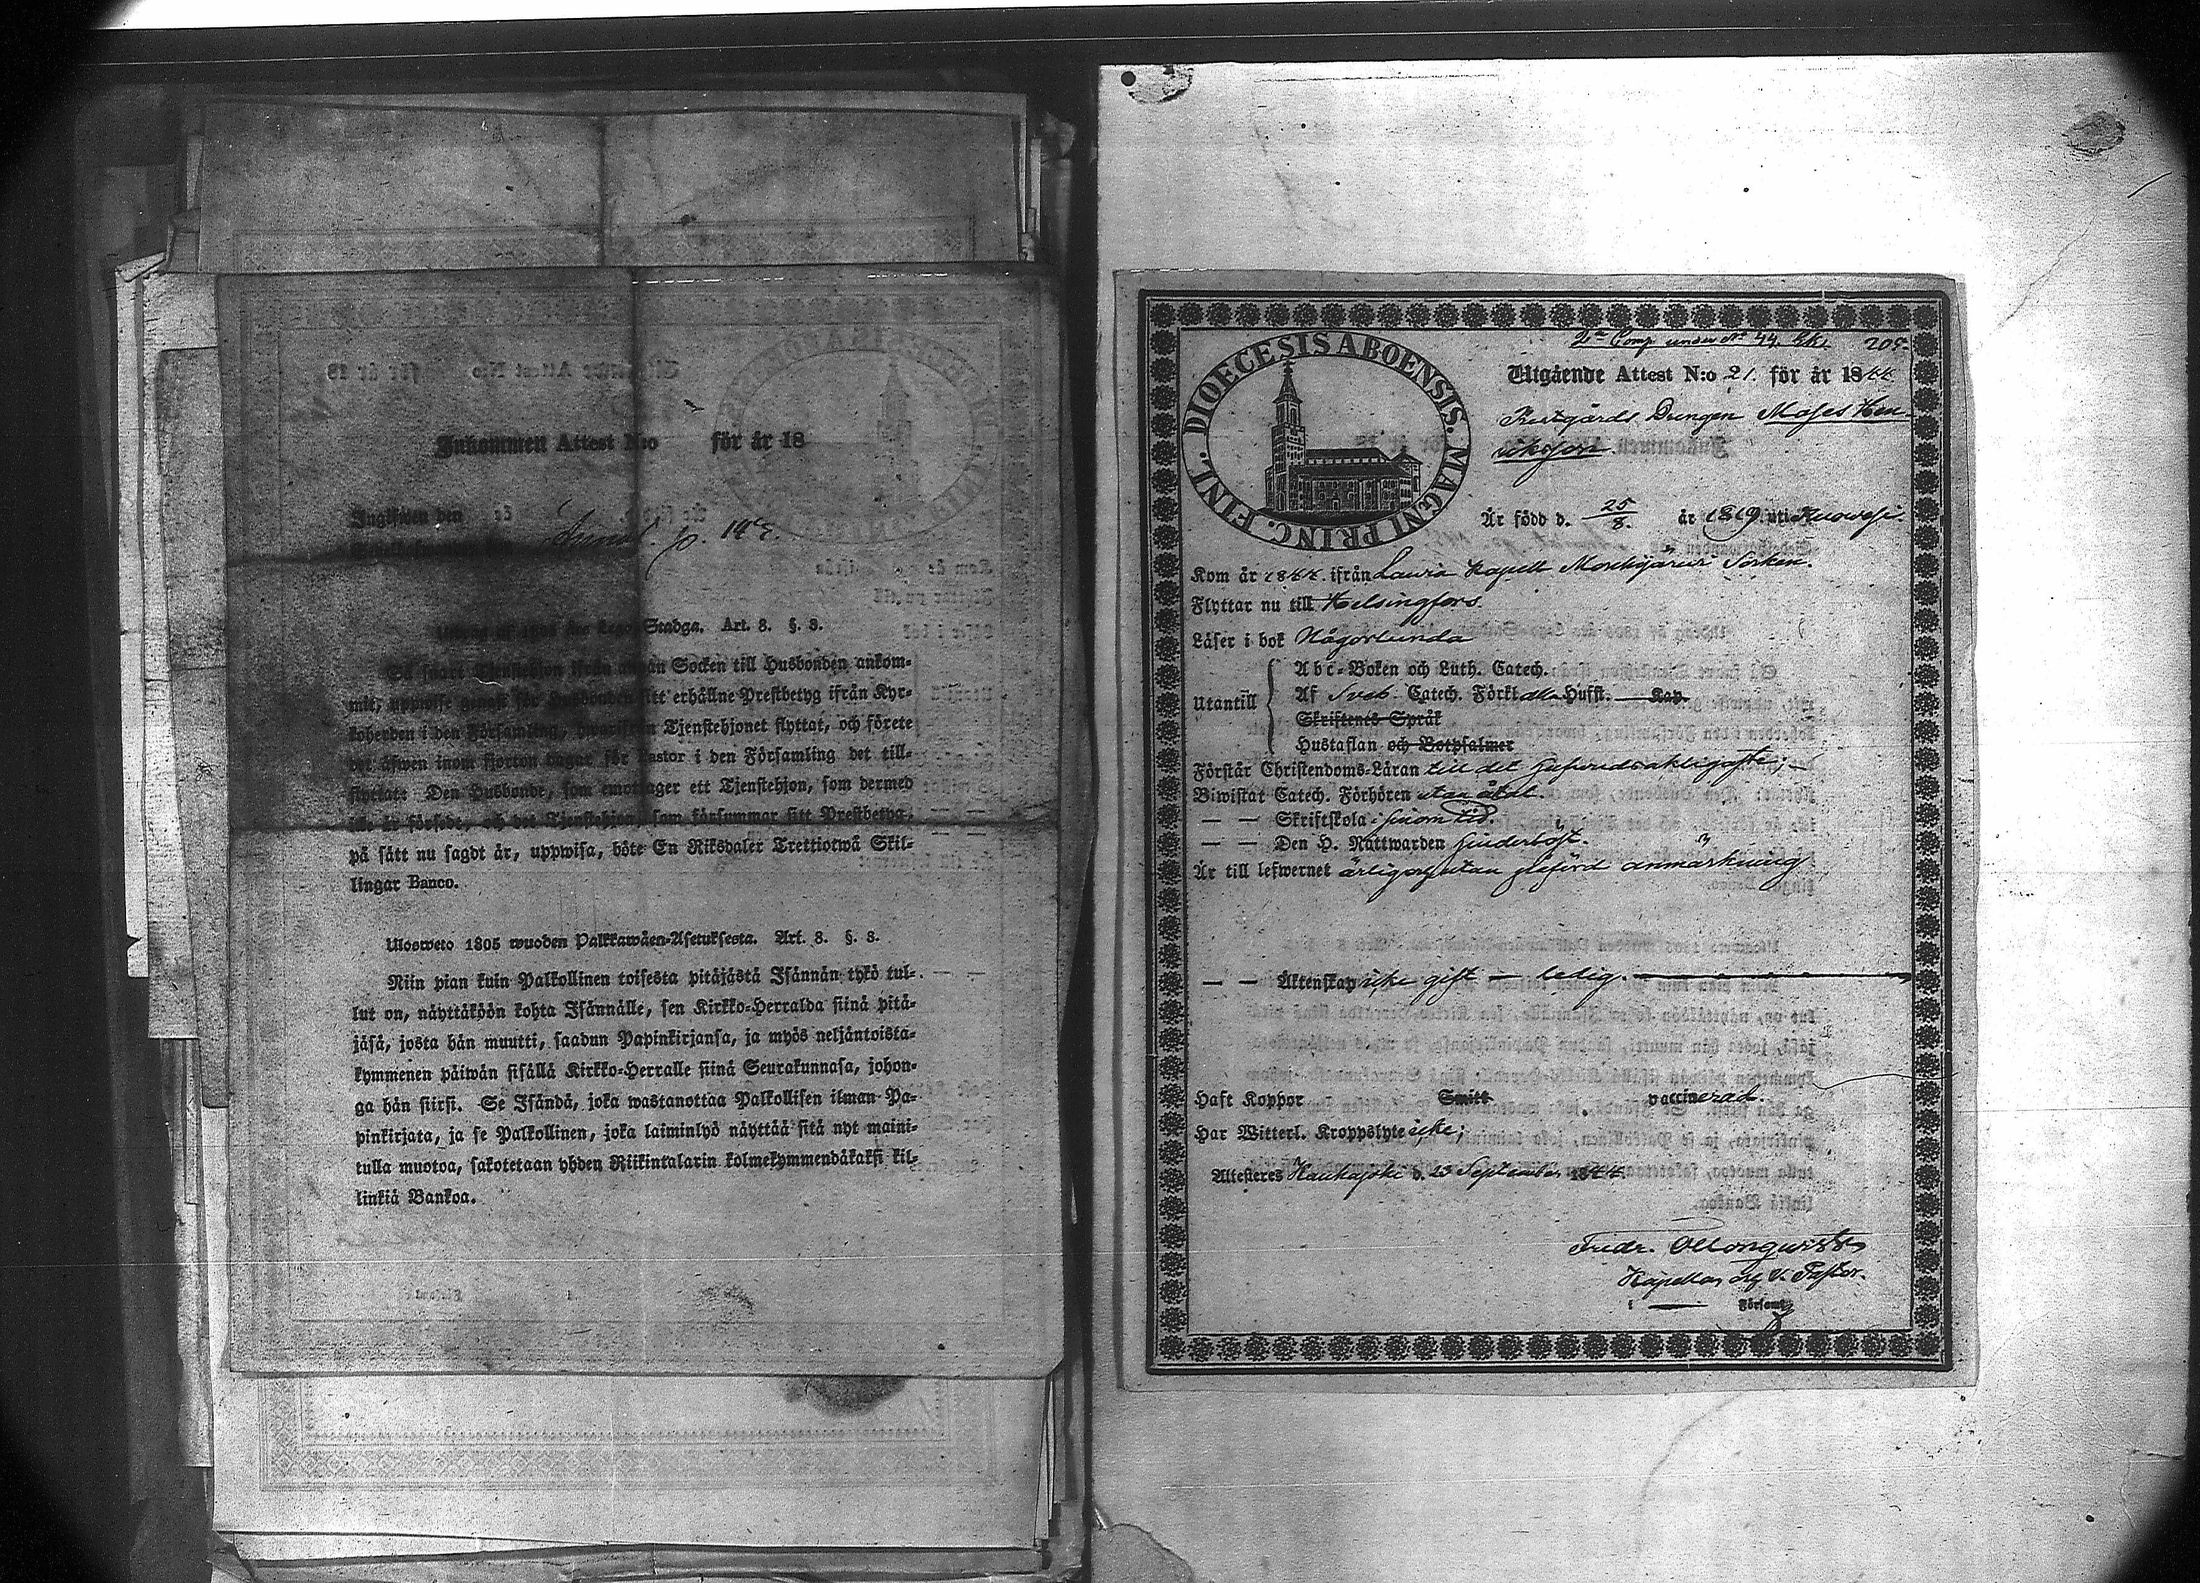 Inkommen Attest N:o för år 18
Inskrifven den på
Annot. p. 19
Utdrag af 1805 års Lego-Stadga. Art. 8. §. 8.
Så snart Tjenstehjon ifrån annan Socken till Husbonden ankom-
mit, uppwise genast för Husbonden sitt erhållne Prestbetyg ifrån Kyr-
koherden i den Församling, hwarifrån Tjenstehjonet flyttat, och förete
det äfwen inom fjorton dagar för Pastor i den Församling det till-
flyttat. Den Husbonde, som emottager ett Tjenstehjon, som dermed
ej är försedt, och det Tjenstehjon, som försummar sitt Prestbetyg,
på sätt nu sagdt är, uppwisa, böte En Riksdaler Trettiotwå Skil-
lingar Banco.
Ulosweto 1805 wuoden Palkkawäen-Asetuksesta. Art. 8. §. 8.
Niin pian kuin Palkollinen toisesta pitäjästä Isännän tykö tul-
lut on, näyttäköön kohta Isännälle, sen Kirkko-Herralda siinä pitä-
jäsä, josta hän muutti, saadun Papinkirjansa, ja myös neljäntoista-
kymmenen päiwän sisällä Kirkko-Herralle siinä Seurakunnasa, johon-
ga hän siirsi. Se Isändä, joka wastanottaa Palkollisen ilman Pa-
pinkirjata, ja se Palkollinen, joka laiminlyö näyttää sitä nyt maini-
tulla muotoa, sakotetaan yhden Riikintalarin kolmekymmendäkaksi kil-
linkiä Bankoa.
DIOECESIS ABOENSIS. MAGNI PRINC. FINL.
2 Comp under N° 44. 205.
Utgående Attest N:o 21. för år 1844
Prestgårds Drengen Moses Hen-
riksson.
Är född d. 25/8. år 1819. uti
Kom år 1844 ifrån Lavia Kapell Mouhijärvi Socken.
Flyttar nu till Helsingfors.
Läser i bok Någorlunda
Utantill
Abc-Boken och Luth. Catech.
Af Sveb. Catech. Förkl alla Hufst. — Kap.
Skriftens Språk
Hustaflan och Botpsalmer
Förstår Christendoms-Läran till det hufvudsakligaste; —
Biwistat Catech. Förhören utan åtal.
— — Skriftskola inom tid.
— — Den H. Nattwarden hinderlöst.
Är till lefwernet ärlig och utan införd anmärkning
— — Äktenskap icke gift — ledig.
Haft Koppor Smitt vaccinerad.
Har Witterl. Kroppslyte icke;
Attesteres d. 23 September 1844.
Fredr.
Kapellan och V. Pastor.
i — Församl.